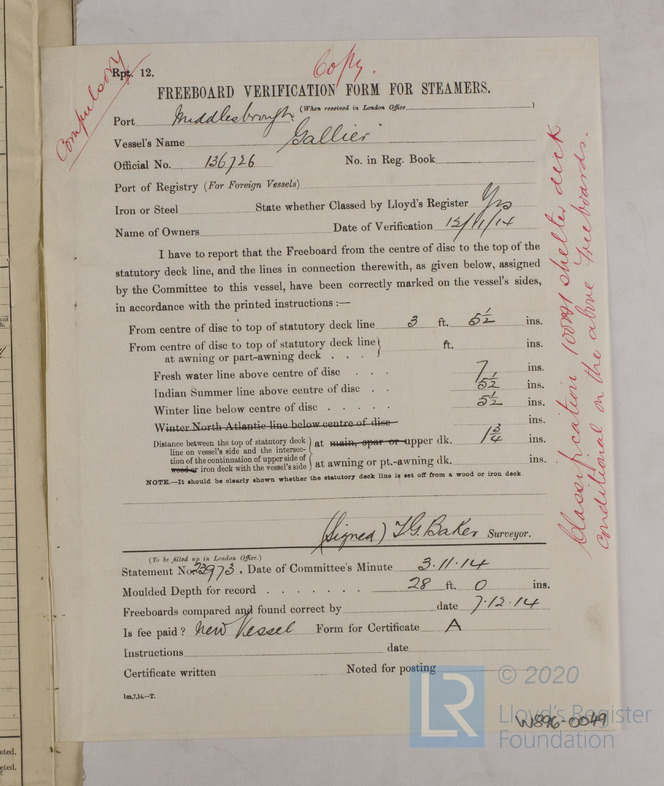 Compulsory
Copy.
Rpt. 12.
FREEBOARD VERIFICATION FORM FOR STEAMERS.
(When received in London Office )
Port Middlesbrough
Vessel's Name Gallier
Official No. 136726 No. in Reg. Book
Port of Registry (For Foreign Vessels)
Iron or Steel State whether Classed by Lloyd's Register Yes
Name of Owners Date of Verification 12/11/14
I have to report that the Freeboard from the centre of disc to the top of the
statutory deck line, and the lines in connection therewith, as given below, assigned
by the Committee to this vessel, have been correctly marked on the vessel's sides,
in accordance with the printed instructions :—
From centre of disc to top of statutory deck line 3 ft. 5½ ins.
From centre of disc to top of statutory deck line } ft. ins.
at awning or part-awning deck . . .
Fresh water line above centre of disc . . . 7 ins.
Indian Summer line above centre of disc . . 5½ ins.
Winter line below centre of disc . . . . . 5½ ins.
Winter North Atlantic line below centre of disc ins.
Distance between the top of statutory deck
line on vessel's side and the intersec-
tion of the continuation of upper side of
wood or iron deck with the vessel's side
} at main, spar or upper dk. 1¾ ins.
} at awning or pt.-awning dk. ins.
NOTE.—It should be clearly shown whether the statutory deck line is set off from a wood or iron deck
(Signed) T.G. Baker Surveyor.
(To be filled up in London Office.)
Statement No. 23973. Date of Committee's Minute 3.11.14
Moulded Depth for record . . . . . . . 28 ft. 0 ins.
Freeboards compared and found correct by date 7.12.14
Is fee paid? New Vessel Form for Certificate A
Instructions date
Certificate written Noted for posting
1m,7,14.—T.
Classification 100A1 shelter deck
conditional on the above freeboards.
W896-0049
© 2020
LR
Lloyd's Register
Foundation